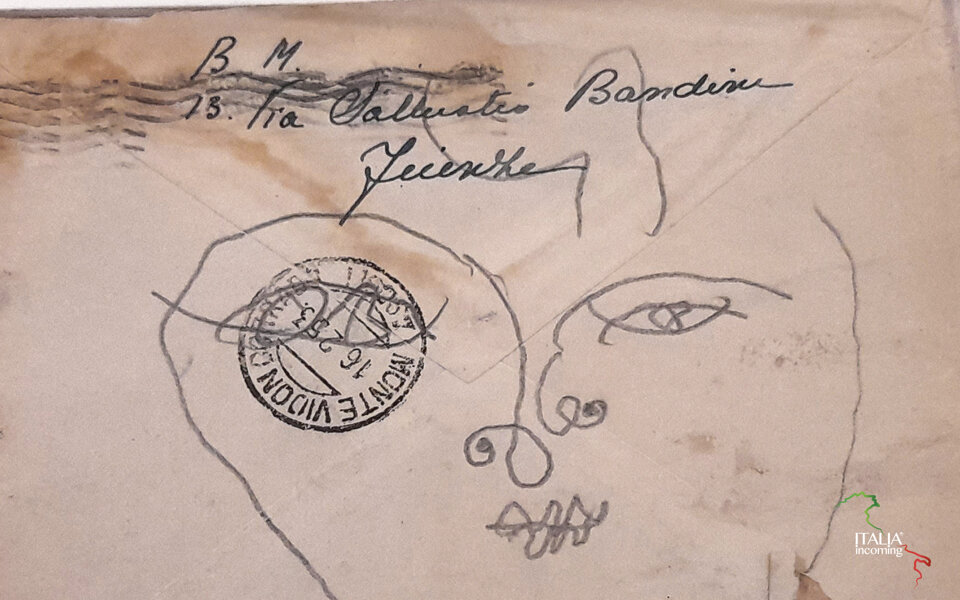 B M.
13. Via Sallustio Bandini
Firenze
MONTE VIDON CORRADO
16 2 53
ITALIA
incoming